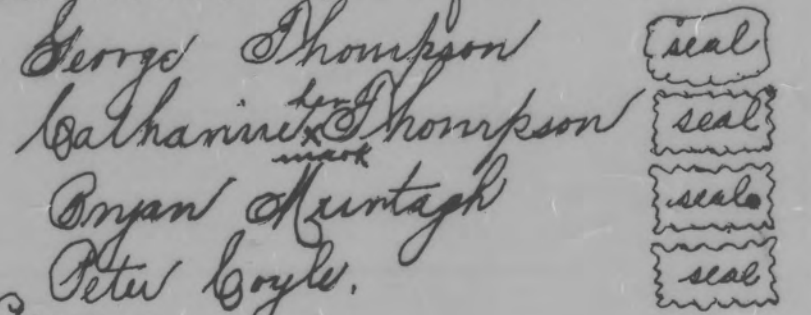 George Thompson seal
Catharine her x mark Thompson seal
Bryan Murtagh seal
Peter Coyle. seal